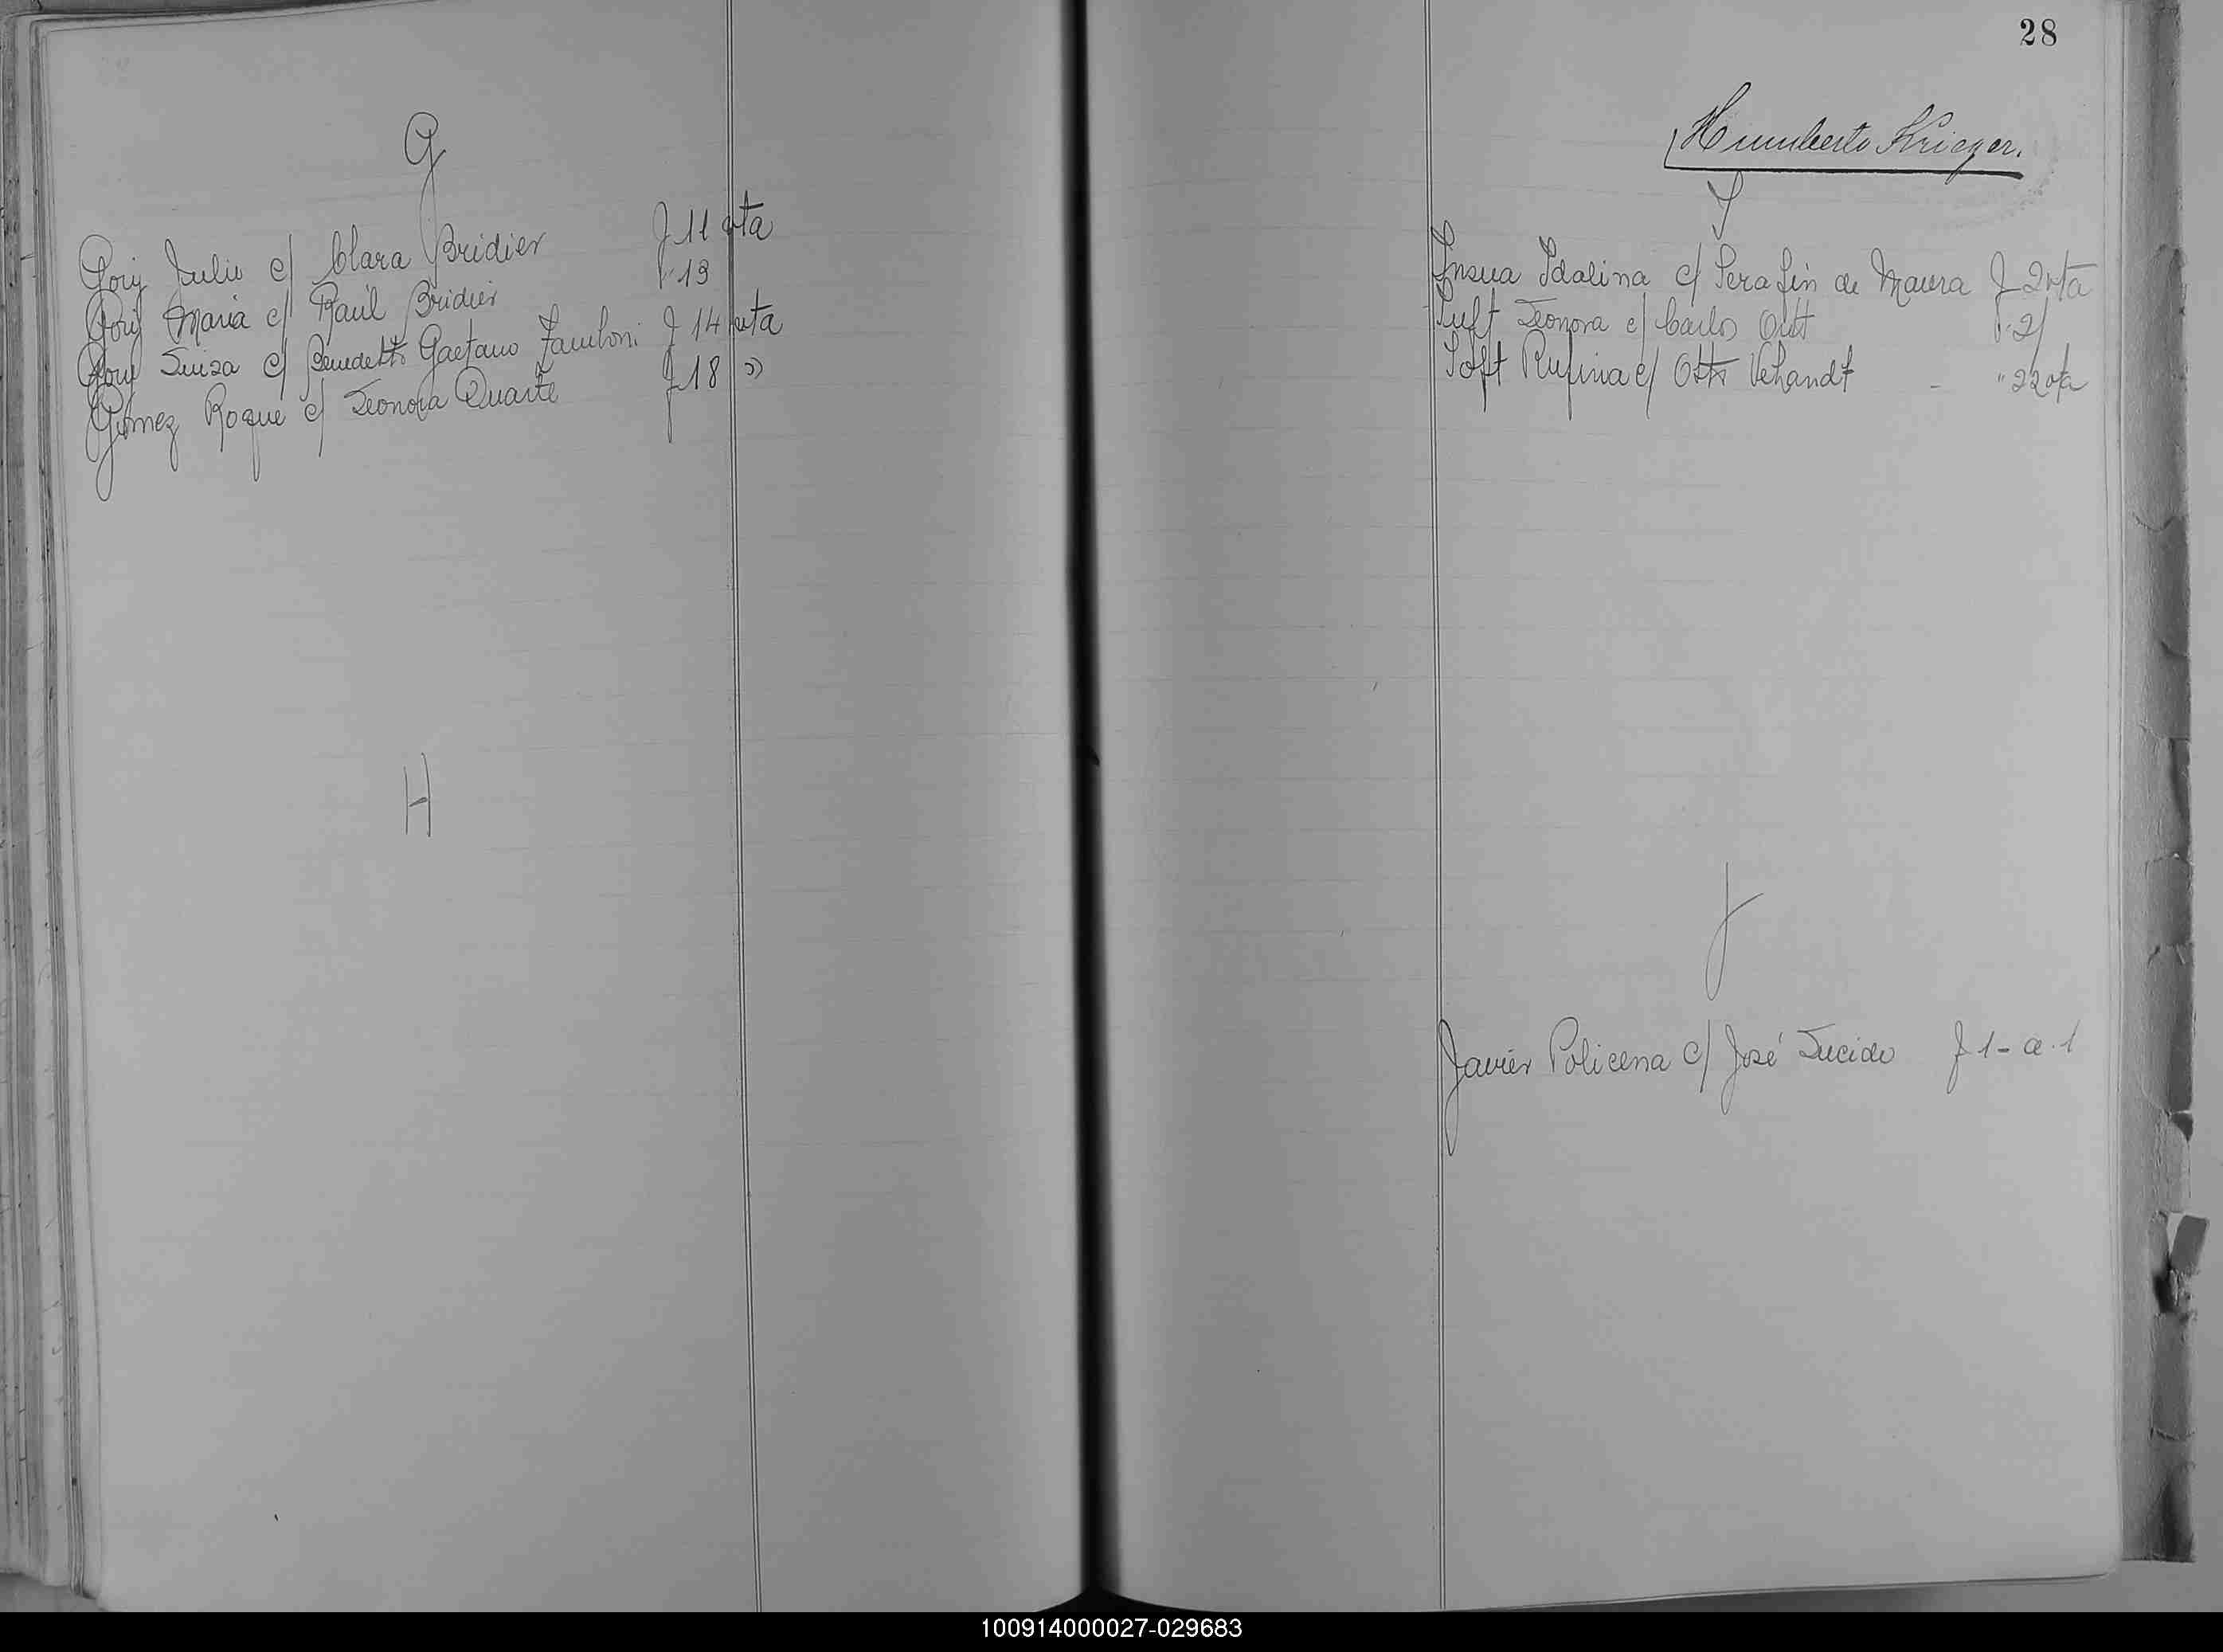 G
Gorij Julio c/ Clara Bridier f 11 vta
Gorij Maria c/ Raúl Bridier " 13
Gorij Luisa c/ Benedetto Gaetano Zamboni f 14 vta
Gómez Roque c/ Leonora Quarte f 18 "
H
28
Humberto Krieger.
Y
Insua Idalina c/ Serafin de Maura f 2 vta
Leonora c/ Carlos Outt " 21
Rufina c/ Otto Vehandt - " 22 vta
J
Javier Policena c/ José Lucido f 1 - a. 1
100914000027-029683